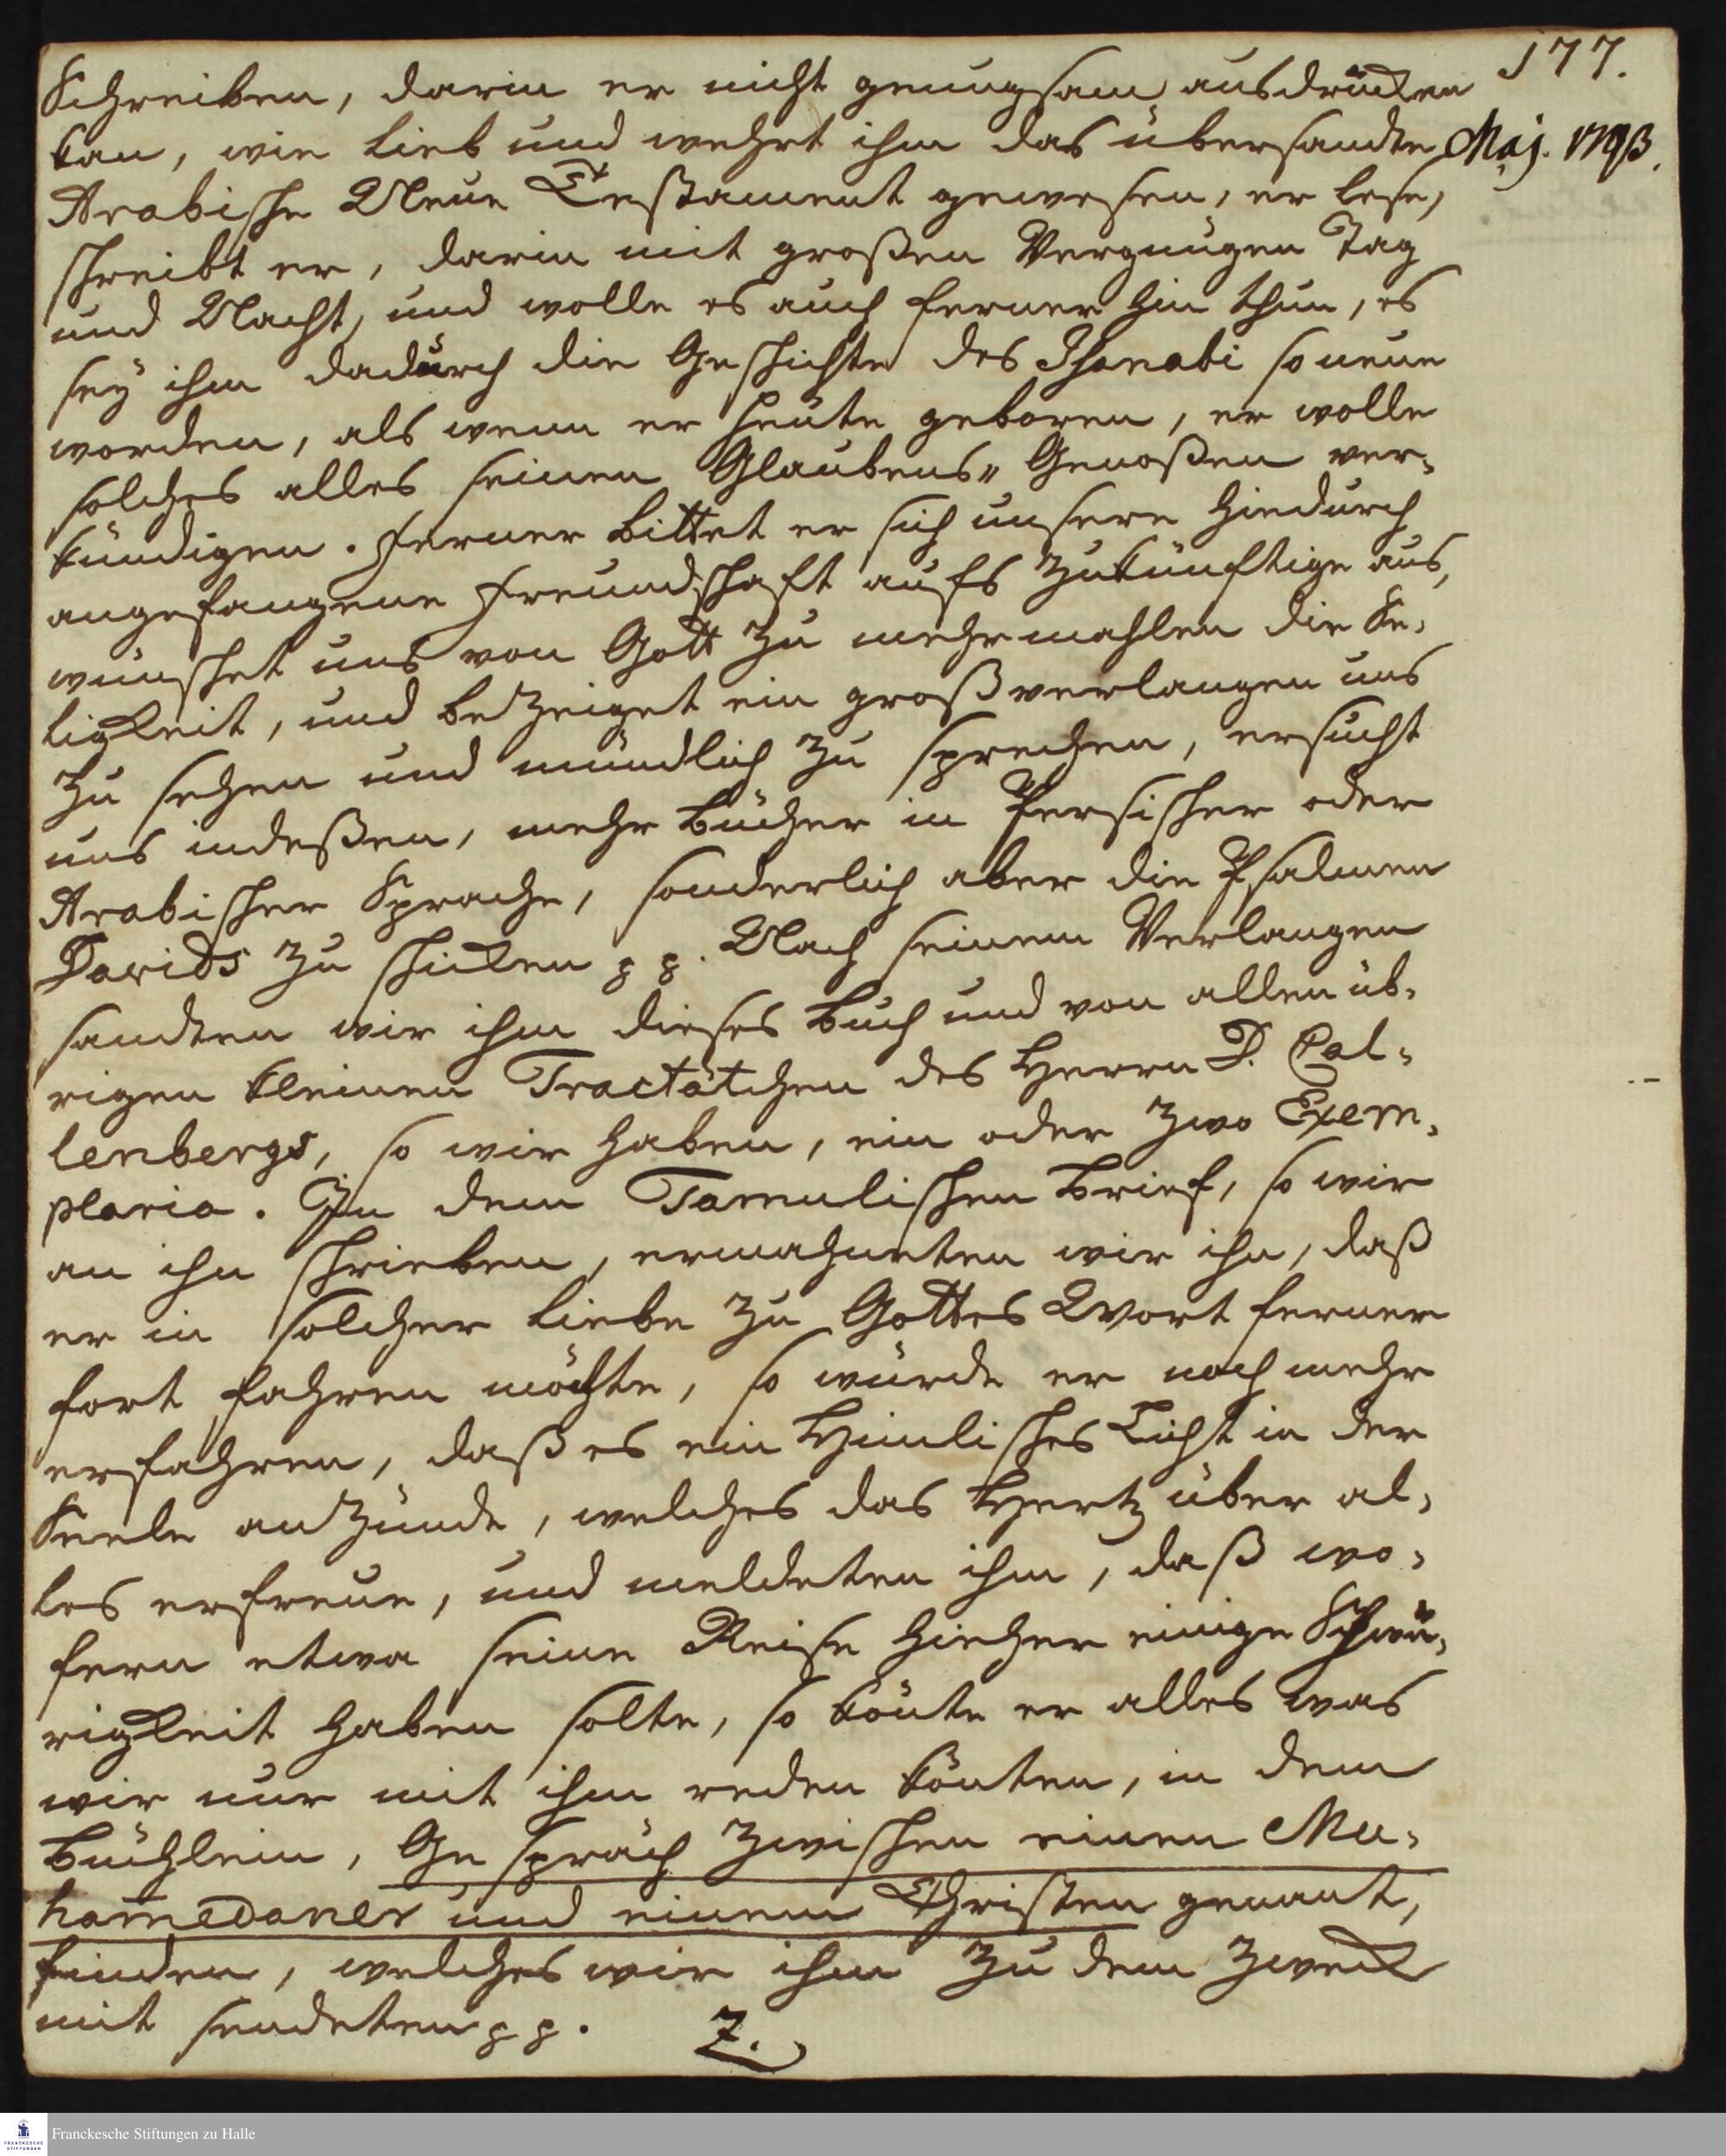 177.
Schreiben, darin er nicht genugsam ausdrücken
kan, wie lieb und wehrt ihm das übersandte
Maj. 1793.
Arabische Neue Testament gewesen, er lese,
schreibt er, darin mit großen Vergnügen Tag
und Nacht, und wolle es auch ferner hin thun, es
sey ihm dadurch die Geschichte des Isanabi so neue
worden, als wenn er heute geboren, er wolle
solches alles seinen Glaubens„ Genoßen ver„
kündigen. Ferner bittet er sich unsere hiedurch
angefangene Freundschaft aufs Zukünftige aus,
wünschet uns von Gott zu mehrmahlen die Se„
ligkeit, und bezeiget ein groß verlangen uns
zu sehen und mündlich zu sprechen, ersucht
uns indeßen, mehr Bücher in Persischer oder
Arabischer Sprache, sonderlich aber die Psalmen
Davids zu schicken pp. Nach seinem Verlangen
sandten wir ihm dieses Buch und von allen üb„
rigen kleinen Tractätchen des Herrn D. Cal„
lenbergs, so wir haben, ein oder zwo Exem„
plaria. In dem Tamulischen Brief, so wir
an ihn schrieben, ermahneten wir ihn, daß
er in solcher Liebe zu Gottes Wort ferner
fort fahren möchte, so würde er noch mehr
erfahren, daß es ein Himlisches Licht in der
Seele anzünde, welches das Hertz über al„
les erfreue, und meldeten ihm, daß wo„
fern etwa seine Reise hieher einige Schwü„
rigkeit haben solte, so könte er alles was
wir nur mit ihm reden könten, in dem
Büchlein, Gespräch zwischen einen Mu„
ham̄edaner und einem Christen genant,
finden, welches wir ihm zu dem Zweck
mit sendeten pp. Z.
FRANCKESCHE STIFTUNGEN
Franckesche Stiftungen zu Halle